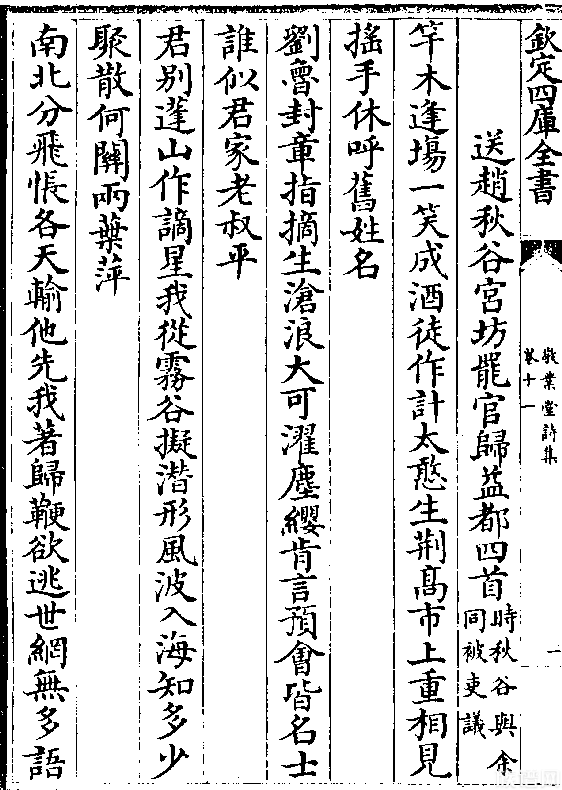 欽定四庫全書
敬業堂詩集
卷十一
一
送趙秋谷宮坊罷官歸益都四首時秋谷與余
同被吏議
竿木逢場一笑成酒徒作計太憨生荆髙市上重相見
搖手休呼舊姓名
劉魯封章指摘生滄浪大可濯塵纓肯言預會皆名士
誰似君家老叔平
君别蓬山作謫星我從霧谷擬潛形風波入海知多少
聚散何闗兩葉萍
南北分飛悵各天輸他先我著歸鞭欲逃世網無多語